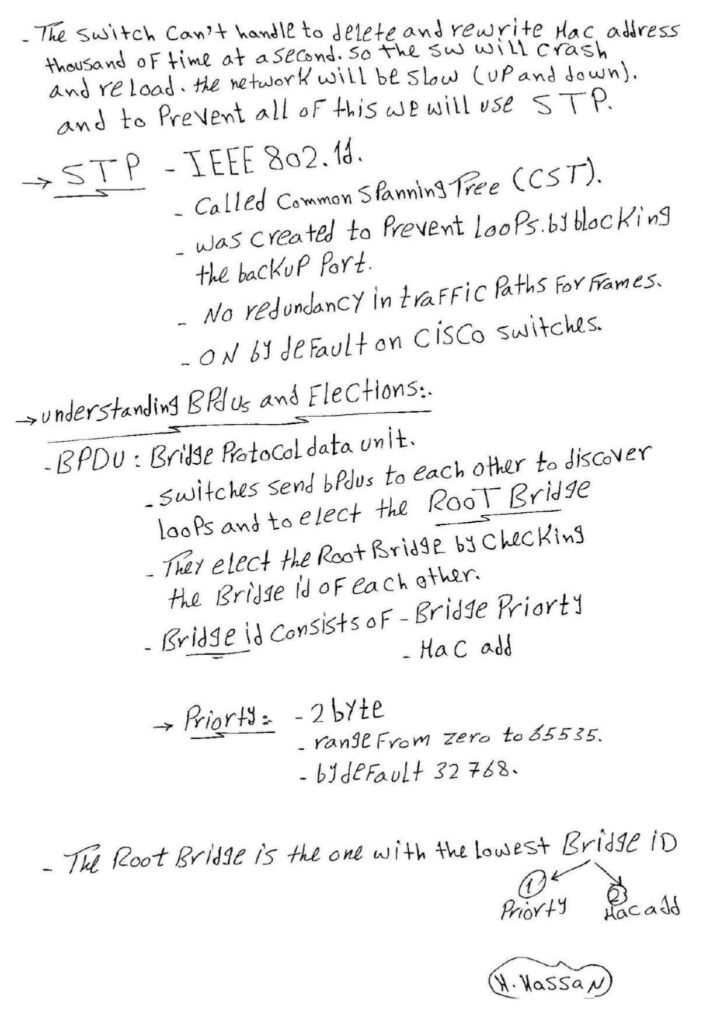 - The switch can't handle to delete and rewrite Mac address
thousand of time at a second. so the sw will crash
and reload. the network will be slow (up and down).
and to Prevent all of this we will use STP.
→ STP - IEEE 802.1d.
- Called Common Spanning Tree (CST).
- was created to Prevent Loops. by blocking
the backup Port.
- No redundancy in traffic Paths For Frames.
- ON by default on Cisco switches.
→ understanding BPdus and Elections:.
- BPDU : Bridge Protocol data unit.
- switches send bPdus to each other to discover
loops and to elect the RooT Bridge
- They elect the Root Bridge by checking
the Bridge id of each other.
- Bridge id consists of - Bridge Priorty
- Mac add
→ Priorty:- - 2 byte
- range From zero to 65535.
- by default 32768.
- The Root Bridge is the one with the lowest Bridge iD
① Priorty ② Mac add
H. Hassan